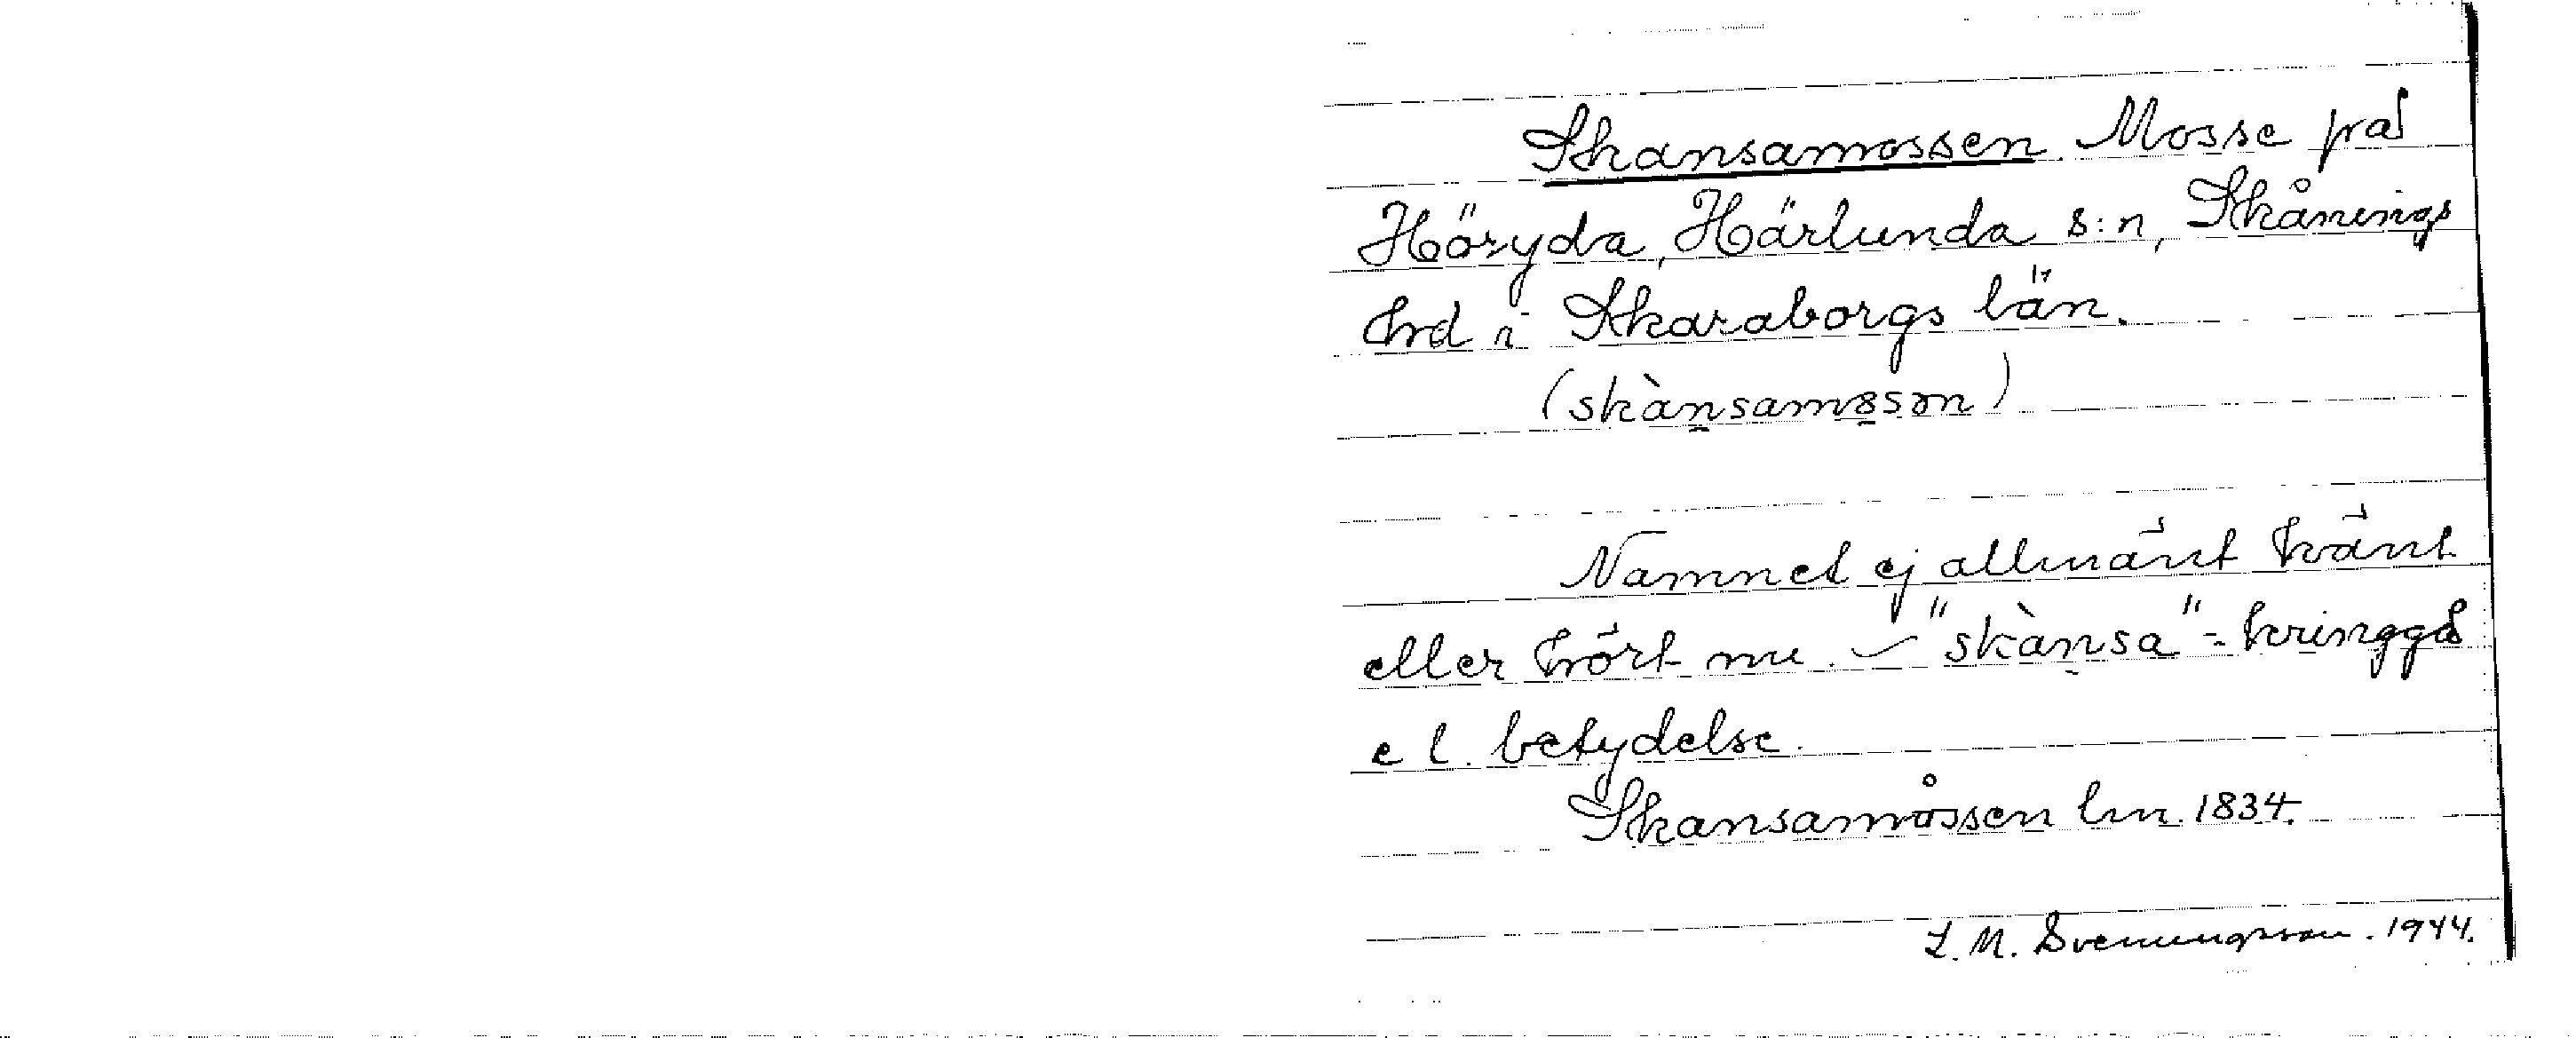 Skansamossen. Mosse på
Höryda, Härlunda s:n, Skånings
hrd i Skaraborgs län.
(skànsamȣsən)
Namnet ej allmänt känt
eller hört nu. – "skànsa" = kringgå
e l. betydelse.
Skansamåssen lm. 1834.
L. M. Svenungsson. 1944.